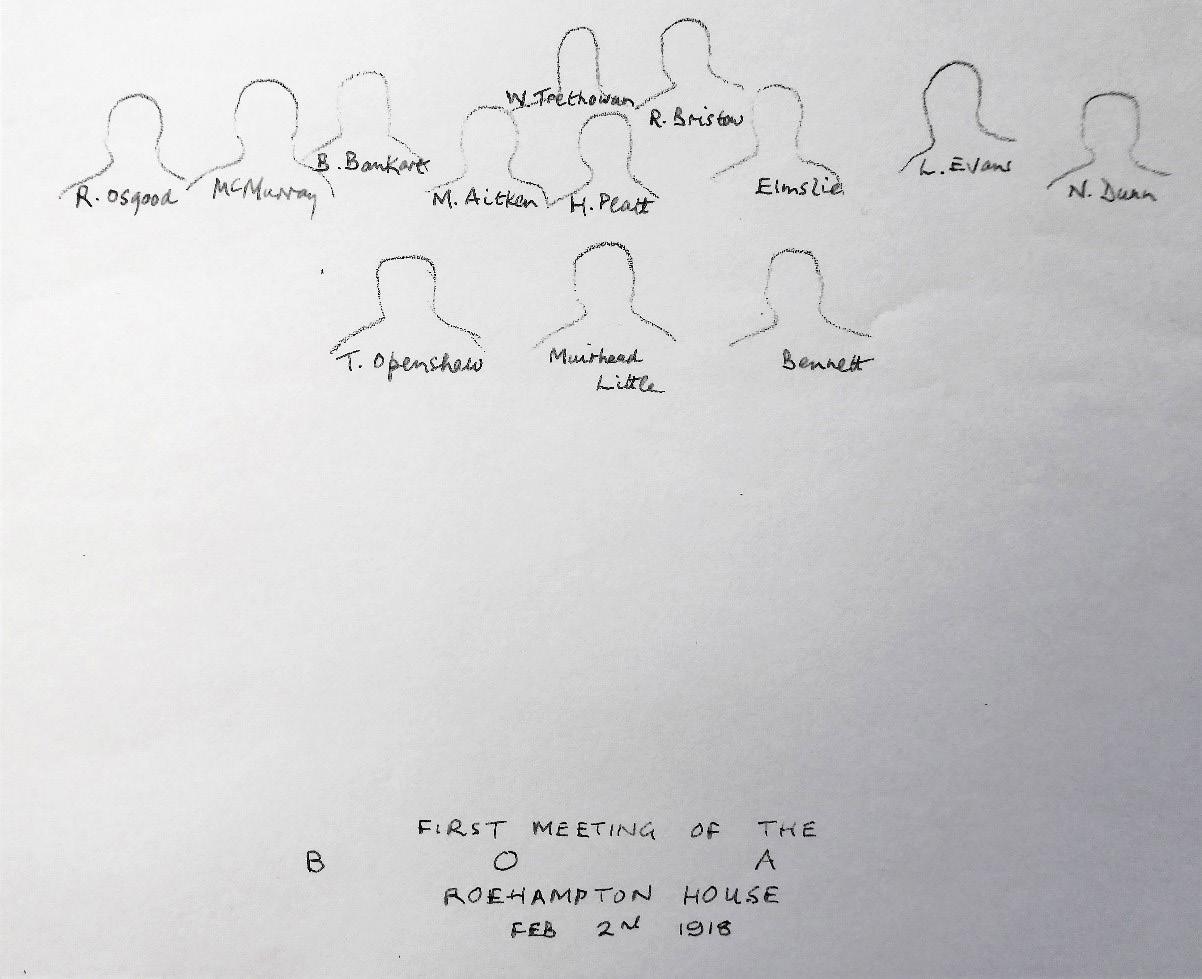 W. Trethowan
R. Bristow
B. Bankart
L. Evans
R. Osgood
McMurray
M. Aitken
H. Platt
Elmslie
N. Dunn
T. Openshaw
Muirhead
Little
Bennett
FIRST MEETING OF THE
B O A
ROEHAMPTON HOUSE
FEB 2nd 1918